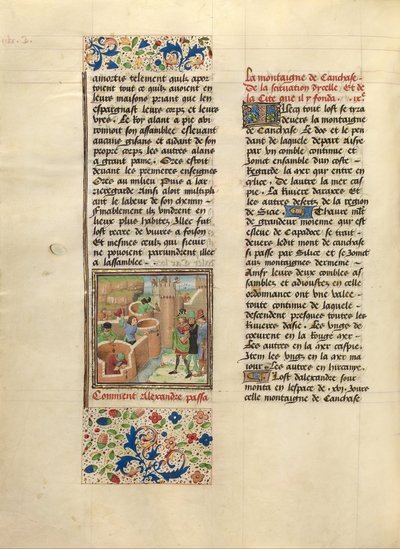 amortis telement quilz apor
toient tout ce quilz avoient en
leurs maisons priant que len
espargnast leurs corps et leurs
vyes. Le Roy alant a pie abi
ronnoit son assamblee eslevant
aucuns gisans et aidant de son
propre corps les autres alans
a grant paine. Ores estoit
devant les premieres enseignes
Ores au milieu Puis a lar
rieregarde Ainsi aloit multipli
ant le labeur de son chemin
Finablement ilz vindrent en
lieux plus habitez Illec fut
lost recree de vivres a foison
Et mesmes ceulz qui sieuir
ne pouoient parvindrent illec
a lassamblee
Comment Alexandre passa
la montaigne de Canchase.
De la scituation dycelle. Et de
la Cite que il y fonda. ix.e
Illecq tout lost se tira
devers la montaigne
de Canchase Le dos et le pen
dant de laquele depart aisse
par vn comble continue et
Joinct ensamble d'un coste
Regarde la mer qui entre en
cilice. De lautre la mer cas
pie. La riviere daraxes et
les autres desertz de la region
de Sicie Thaure mont
de grandeur moienne qui est
esleue de Capadoce se trait
devers ledit mont de canchase
si passe par Silice et se Joinct
aux montaignes dermenie
Ainsy leurs deux combles as
samblez et adioustez en celle
ordonnance ont vne valee
toute continue de laquele
descendent presques toutes les
Rivieres dasie. Les vngs de
cueurent en la Rouge mer
Les autres en la mer caspie.
Item les vngz en la mer ma
iour Les autres en hircanye.
Lost dalexandre sour
monta en lespace de .xvj. Jours
celle montaigne de Canchase